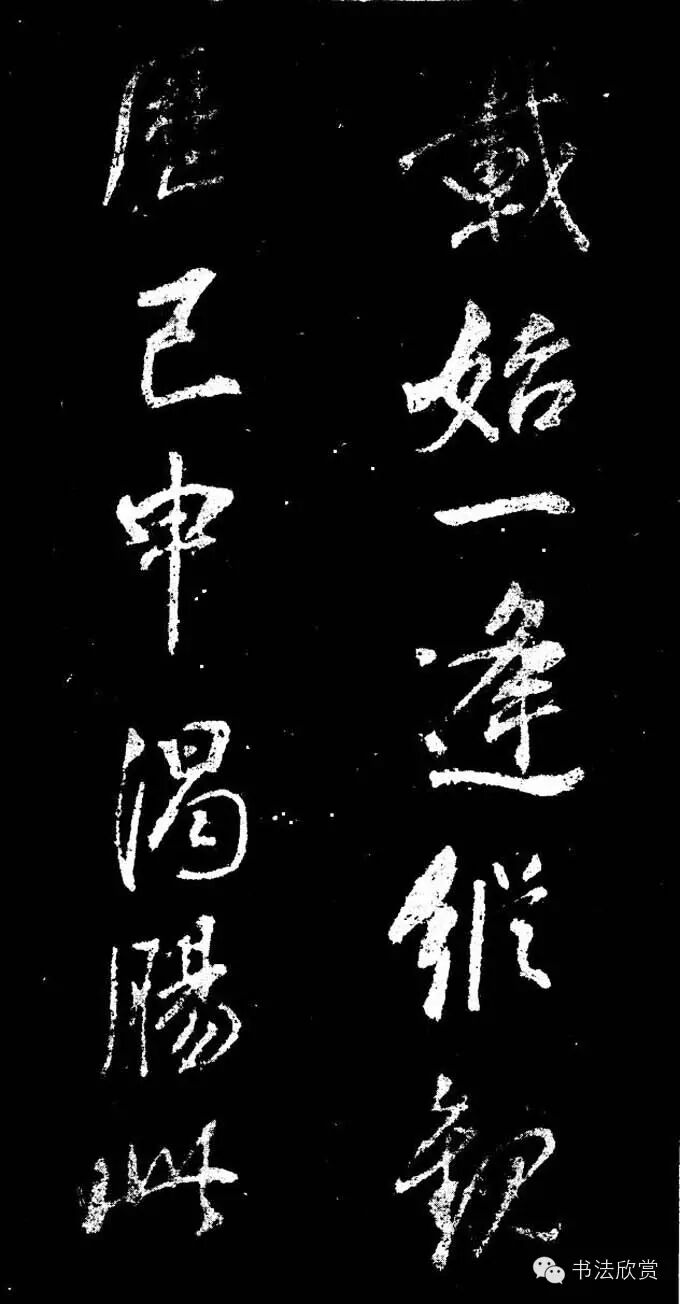 載始一逢縱觀
歷已申渴腸此
书法欣赏